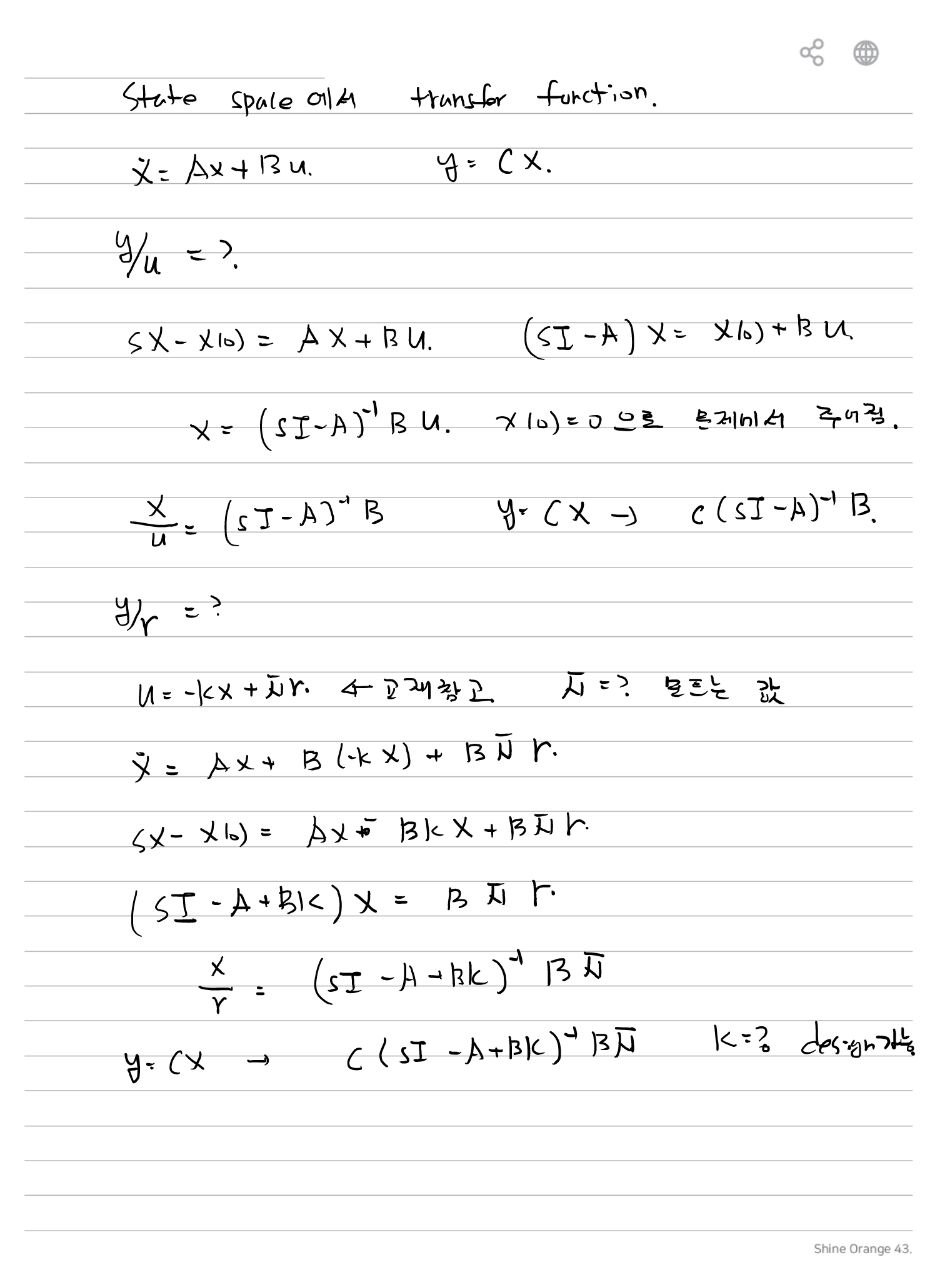 State space에서 transfer function.
ẋ = Ax + Bu. y = Cx.
y/u = ?.
sX - x(0) = AX + BU. (sI - A)X = x(0) + BU.
x = (sI-A)⁻¹ B U. x(0) = 0 으로 문제에서 주어짐.
x/u = (sI-A)⁻¹ B y = CX → C(sI-A)⁻¹ B.
y/r = ?
u = -kx + N̄r. ← 교재참고 N̄ = ? 모르는 값
ẋ = Ax + B(-kx) + BN̄ r.
sX - x(0) = Ax - BkX + BN̄ r.
(sI - A + Bk) x = B N̄ r.
x/r = (sI - A + Bk)⁻¹ B N̄
y = CX → C(sI - A + Bk)⁻¹ BN̄ k = ? design가능
Shine Orange 43.